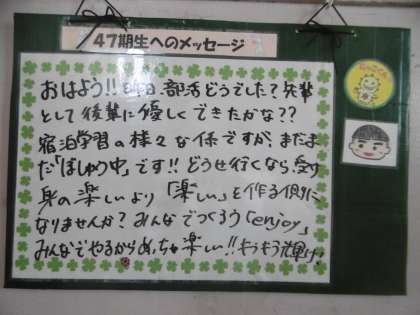 47期生へのメッセージ
おはよう!! 昨日、部活どうでした？先輩
として後輩に優しくできたかな？？
宿泊学習の様々な係ですが、まだま
だ「ぼしゅう中」です!! どうせ行くなら、受け
身の楽しいより「楽しい」を作る側に
なりませんか？みんなでつくろう「enjoy」
みんなでやるからめっちゃ楽しい!! キラキラ輝け。